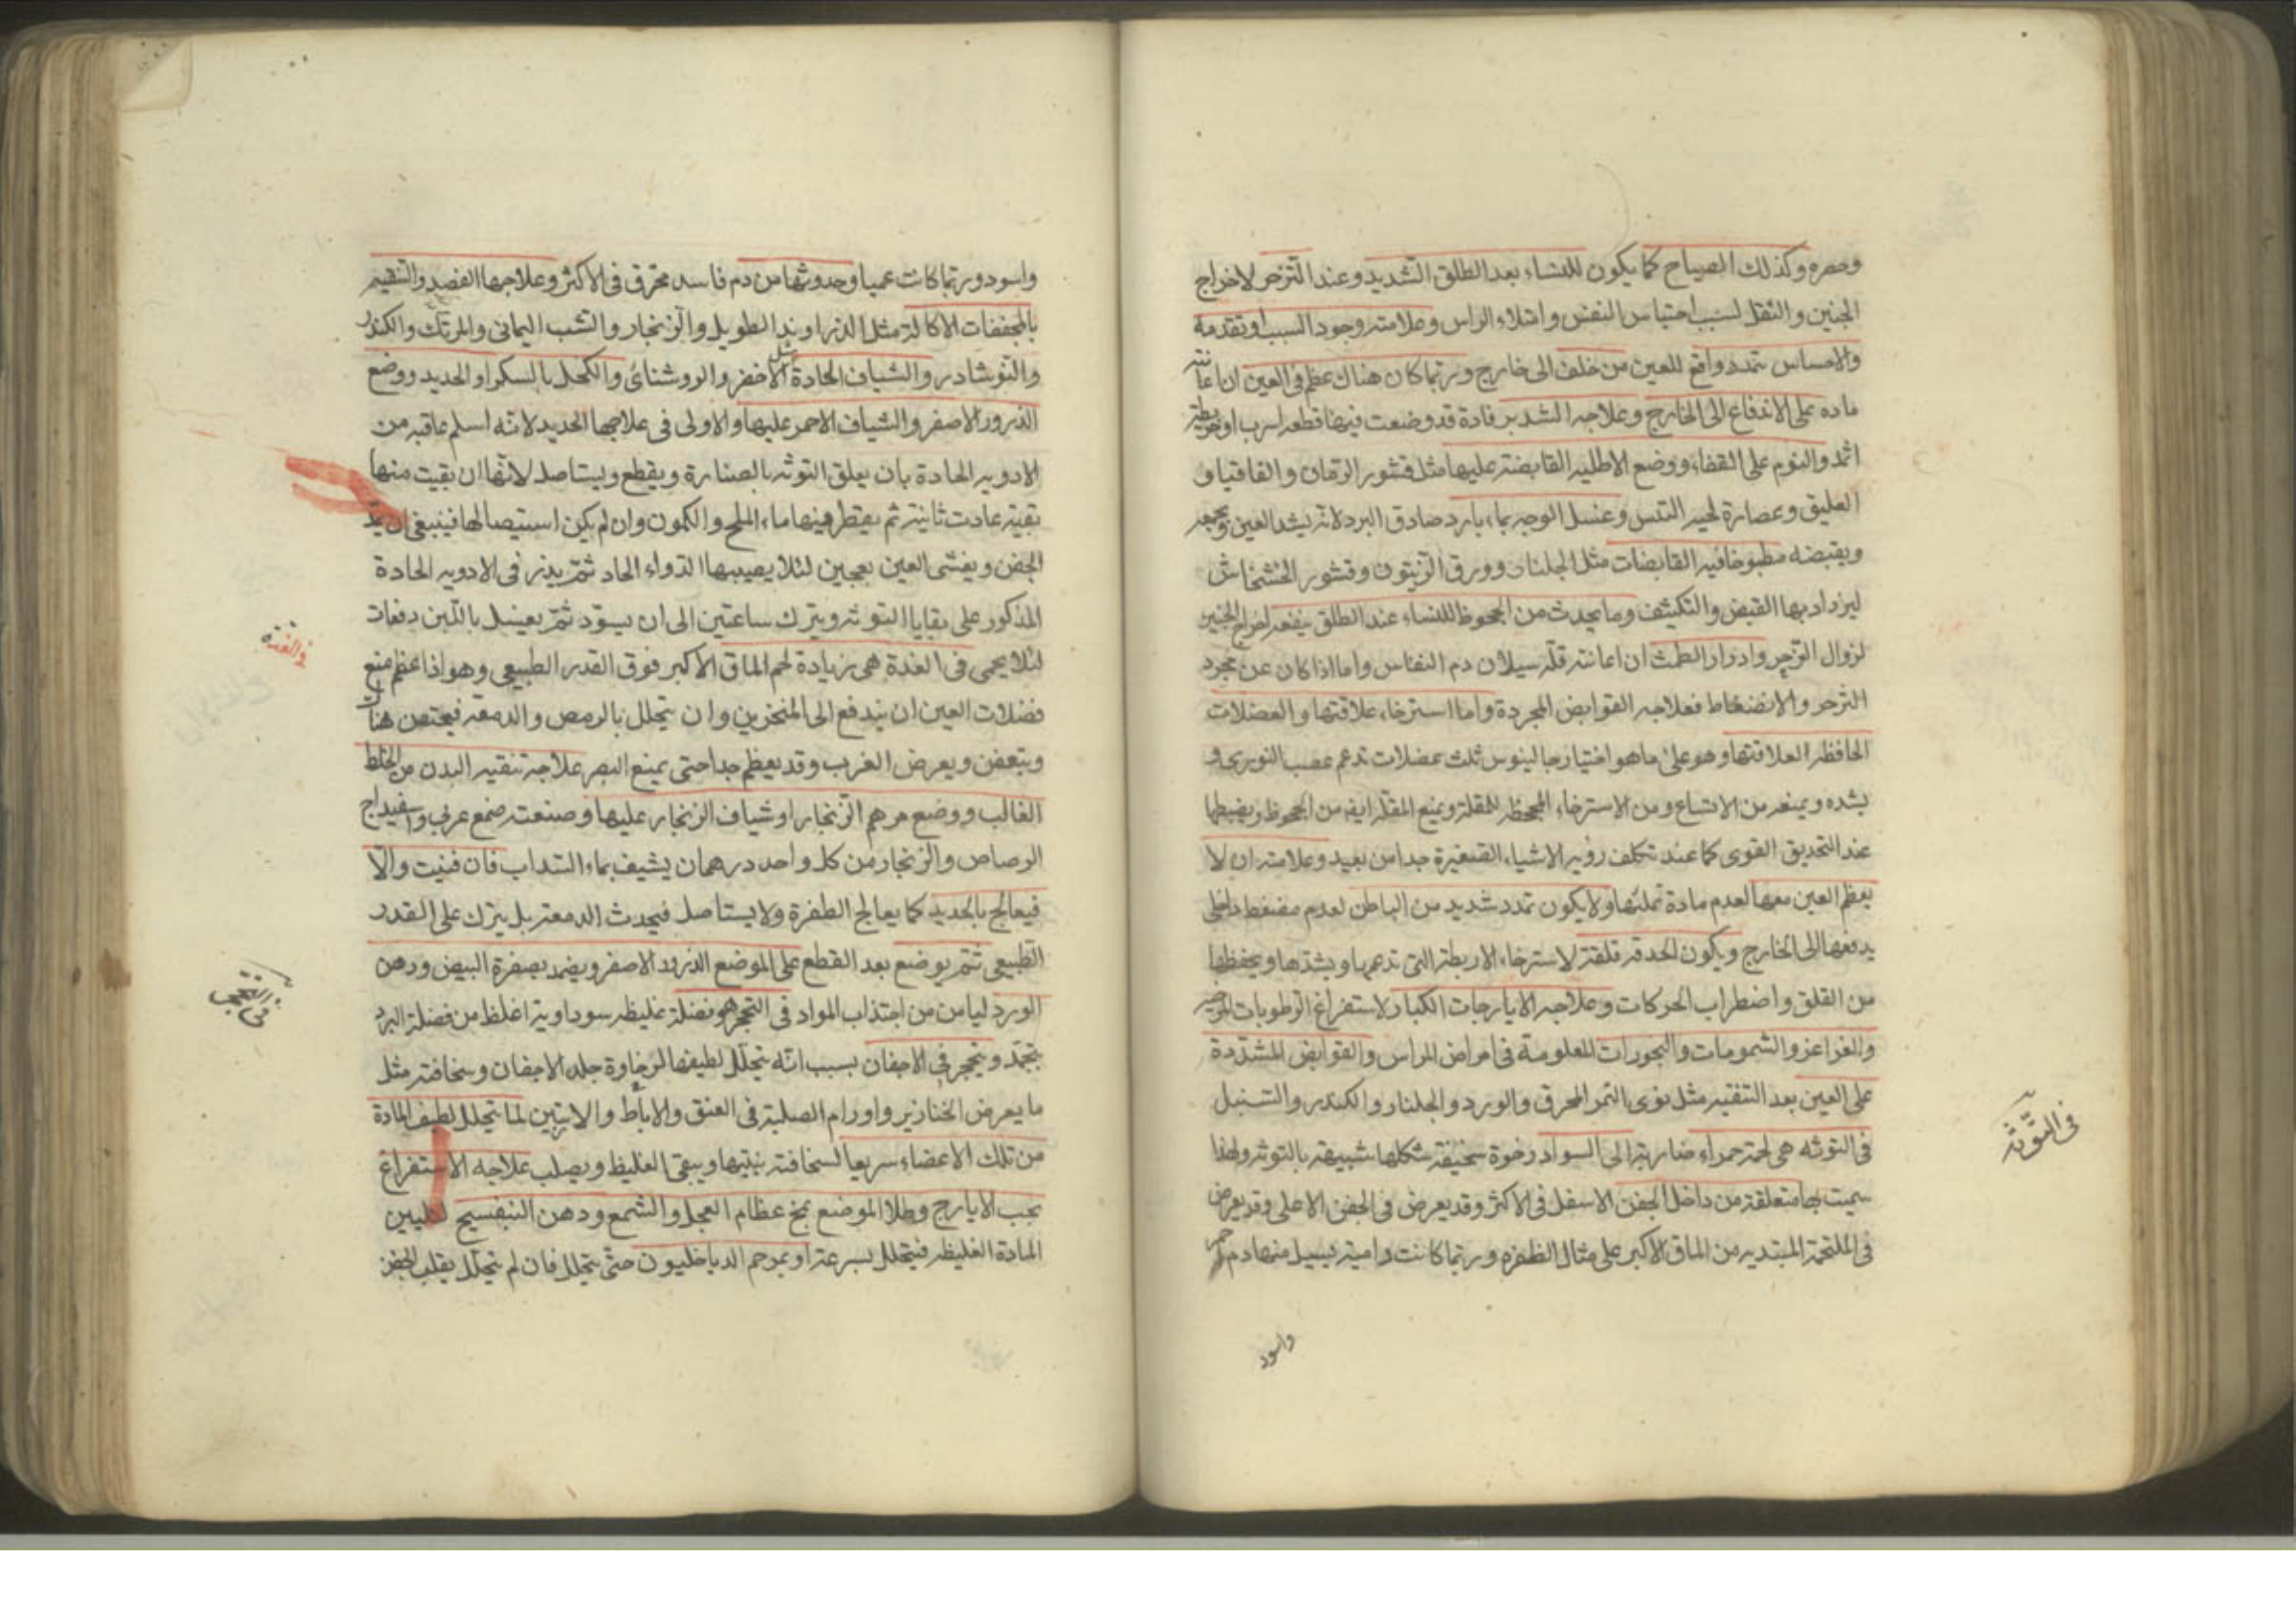 وحصره وكذلك الصياح كما يكون للنساء بعد الطلق الشديد وعند التزحر لاخراج
الجنين والثقل لسبب احتباس النفس وامتلاء الراس وعلامته وجود السبب او تقدمه
والاحساس بتمدد دافع للعين من خلف الى خارج وربما كان هناك عظم فى العين ان اعانته
ماده على الاندفاع الى الخارج وعلاجه الشد برفادة قد وضعت فيها قطعه اسرب او خريطة
اثمد والنوم على القفاء ووضع الاطليه القابضة عليها مثل قشور الرمان والقاقيا و
العليق وعصارة لحيه التيس وغسل الوجه بماء بارد صادق البرد لانه يشد العين ويجمعه
ويقبضه مطبوخا فيه القابضات مثل الجلنار وورق الزيتون وقشور الخشخاش
ليزداد بها القبض والتكيثف وما يحدث من الجحوظ للنساء عند الطلق ينفعه اخراج الجنين
لزوال التزحر وادرار الطمث ان اعانته قلة سيلان دم النفاس واما اذا كان عن مجرد
التزحر والانضغاط فعلاجه القوابض المجردة واما استرخاء علاقتها والعضلات
الحافظة لعلاقتها وهو على ما هو اختيار جالينوس ثلث عضلات تدعم عصب النورى و
يشده ويمنعه من الاتساع ومن الاسترخاء المجحظ للمقلة ويمنع المقلة ايضه من الجحوظ ويضبطها
عند التحديق القوى كما عند تكلف رؤيه الاشياء الصغيرة جدا من بعيد وعلامته ان لا
يعظم العين معها لعدم مادة تملئها ولا يكون تمدد شديد من الباطن لعدم مضغط داخلى
يدفعها الى الخارج ويكون الحدقه قلقة لاسترخاء الاربطة التى تدعمها ويشدها ويحفظها
من القلق واضطراب الحركات وعلاجه الايارجات الكبار لاستفراغ الرطوبات المرخيه
والغراغز والشمومات والبخورات المعلومة فى امراض الراس والقوابض المشددة
على العين بعد التنقيه مثل نوى التمر المحرق والورد والجلنار والكندر والسنبل
فى التوثه هى لحمة حمراء ضاربة الى السواد رخوة سخيفة شكلها شبيهة بالتوثه ولهذا
سميت بها متعلقة من داخل الجفن الاسفل فى الاكثر وقد يعرض فى الجفن الاعلى وقد يعرض
فى الملتحمة المبتديه من الماق الاكبر على مثال الظفره وربما كانت دامية يسيل منها دم احمر
فى التوثه
واسود
واسود وربما كانت عميا وحدوثها من دم فاسد محترق فى الاكثر وعلاجها الفصد والتنقيه
بالمجففات الاكالة مثل الزراوند الطويل والزنجار والشب اليمانى والمرتك والكندر
والنوشادر والشياف الحادة مثل الاخضر والروشنائى والكحل بالسكر او الحديد ووضع
الذرور الاصفر والشياف الاحمر عليها والاولى فى علاجها الحديد لانه اسلم عاقبه من
الادويه الحادة بان يعلق التوثه بالصنارة ويقطع ويستاصل لانها ان بقيت منها
بقية عادت ثانية ثم يقطر فيها ماء الملح والكمون وان لم يكن استيصالها فينبغى ان
الجفن ويغشى العين بعجين لئلا يصيبها الدواء الحاد ثم يذر فى الادويه الحادة
المذكور على بقايا التوثه ويترك ساعتين الى ان يسود ثم يغسل باللبن دفعات
لئلا يحمى فى الغدة هى زيادة لحم الماق الاكبر فوق القدر الطبيعى وهو اذا عظم منع
فضلات العين ان يندفع الى المنخرين وان يتحلل بالرمص والدمعه فيحتقن هناك
ويتعفن ويعرض الغرب وقد يعظم جدا حتى يمنع البصر علاجه تنقيه البدن من الخلط
الغالب ووضع مرهم الزنجار او شياف الزنجار عليها وصنعته صمغ عربى واسفيداج
الرصاص والزنجار من كل واحد درهمان يشيف بماء السداب فان فنيت والا
فيعالج بالحديد كما يعالج الظفرة ولا يستاصل فيحدث الدمعه بل يترك على القدر
الطبيعى ثم يوضع بعد القطع على الموضع الذرور الاصفر ويضمد بصفرة البيض ودهن
الورد ليامن من اجتذاب المواد فى التحجر هو فضلة غليظه سوداوية اغلظ من فضلة البرد
يتجمد ويتحجر فى الاجفان بسبب انه يتحلل لطيفها لرخاوة جلد الاجفان وسخافته مثل
ما يعرض الخنازير واورام الصلبة فى العنق والاباط والاربتين لما يتحلل لطيف المادة
من تلك الاعضاء سريعا لسخافة بنيتها ويبقى الغليظ ويصلب علاجه الاستفراغ
بحب الايارج وطلا الموضع بمخ عظام العجل والشمع ودهن البنفسيج لتليين
المادة الغليظه فيتحلل بسرعة او بمرهم الدياخليون حتى يتحلل فان لم يتحلل يقلب الجفن
فى الغدة
فى التحجر